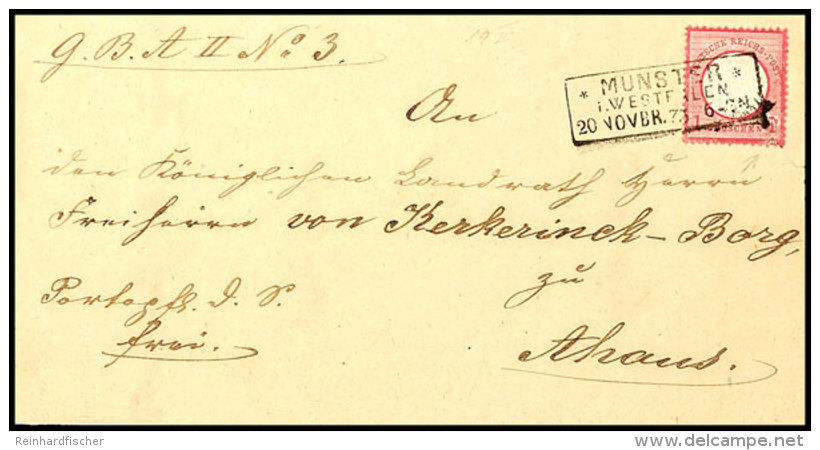 G. B. A II No 3.
DEUTSCHE REICHS-POST
* MÜNSTER *
I. WESTFALEN
20 NOVBR. 73 6-7N
1 GROSCHEN 1
An
den Königlichen Landrath Herrn
Freiherrn von Kerkerinck-Borg,
zu
Portopfl. D. S.
frei.
Ahaus.
Reinhardfischer
delcampe.net